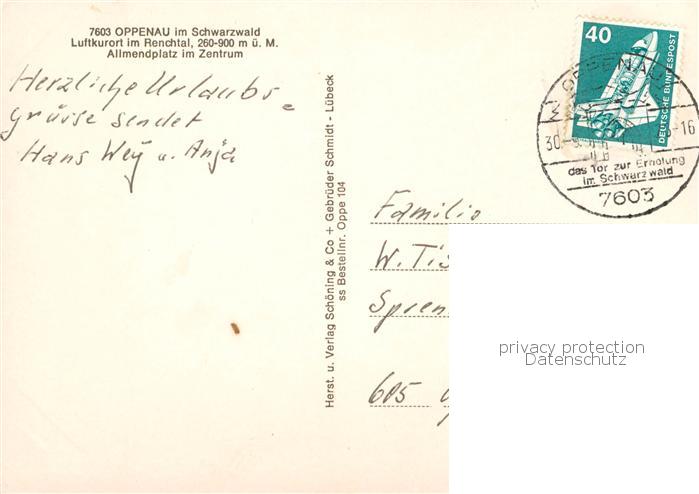 7603 OPPENAU im Schwarzwald
Luftkurort im Renchtal, 260-900 m ü. M.
Allmendplatz im Zentrum
Herzliche Urlaubs-
grüsse sendet
Hans Wey u. Anja
Herst. u. Verlag Schöning & Co + Gebrüder Schmidt - Lübeck
ss Bestellnr. Oppe 104
40
DEUTSCHE BUNDESPOST
OPPENAU
-16
das Tor zur Erholung
im Schwarzwald
7603
Familie
W.
privacy protection
Datenschutz